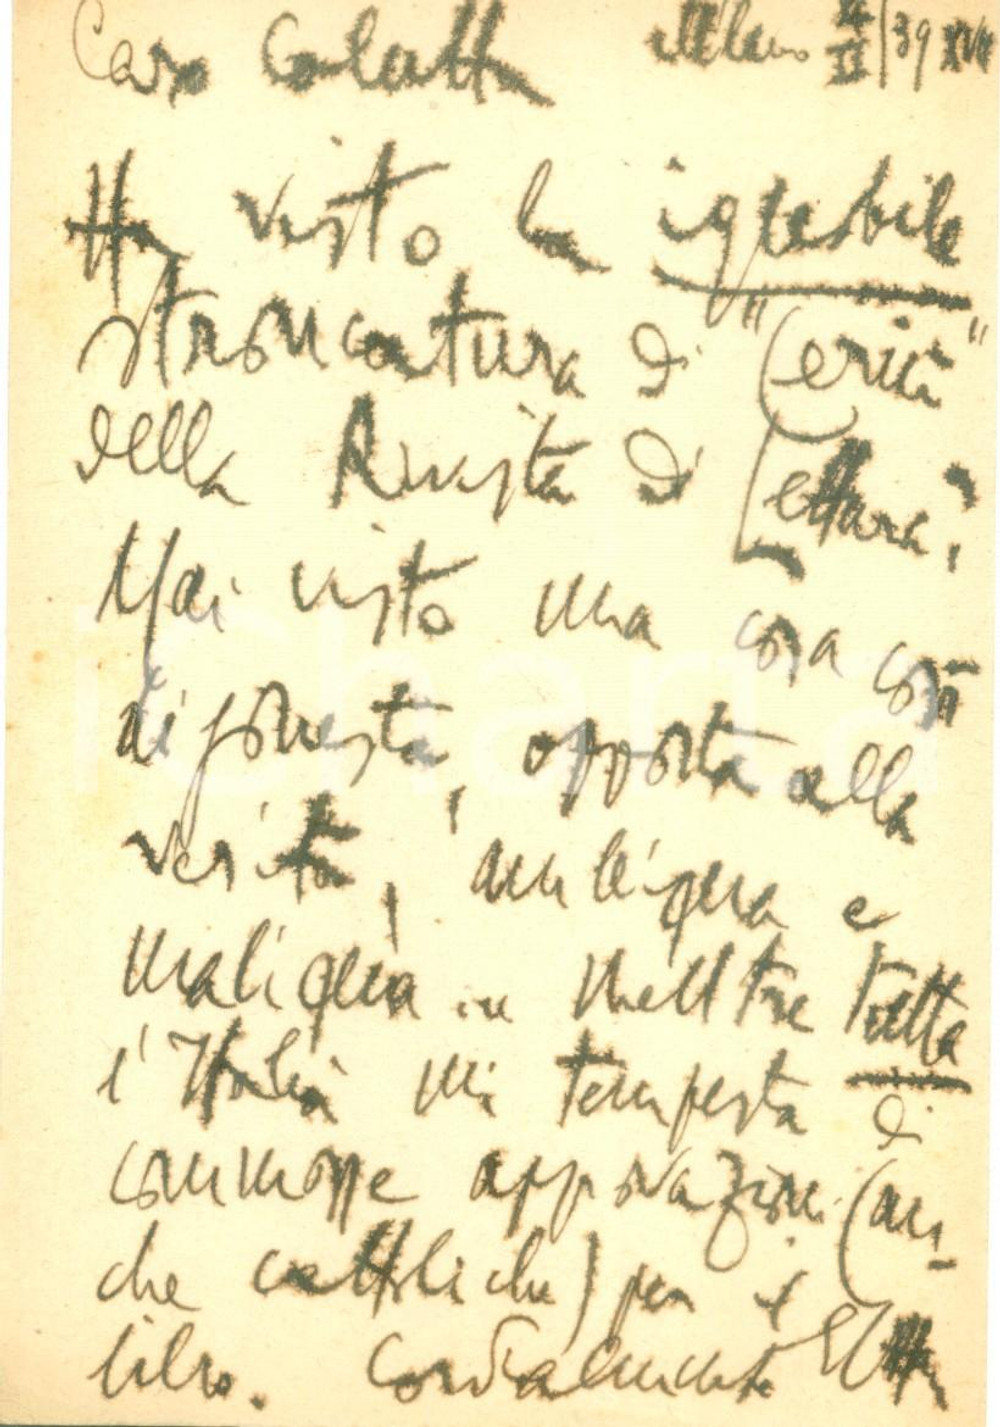 Caro Milano /39 XVII
Ha visto la ignobile
stroncatura di "Cerità"
della Rivista di Lettura?
Mai visto una cosa così
disonesta, opposta alla
verità, ambigua e
maligna. Mentre tutta
l'Italia mi tempesta di
commosse approvazioni (an-
che cattoliche) per il
libro. Cordialmente